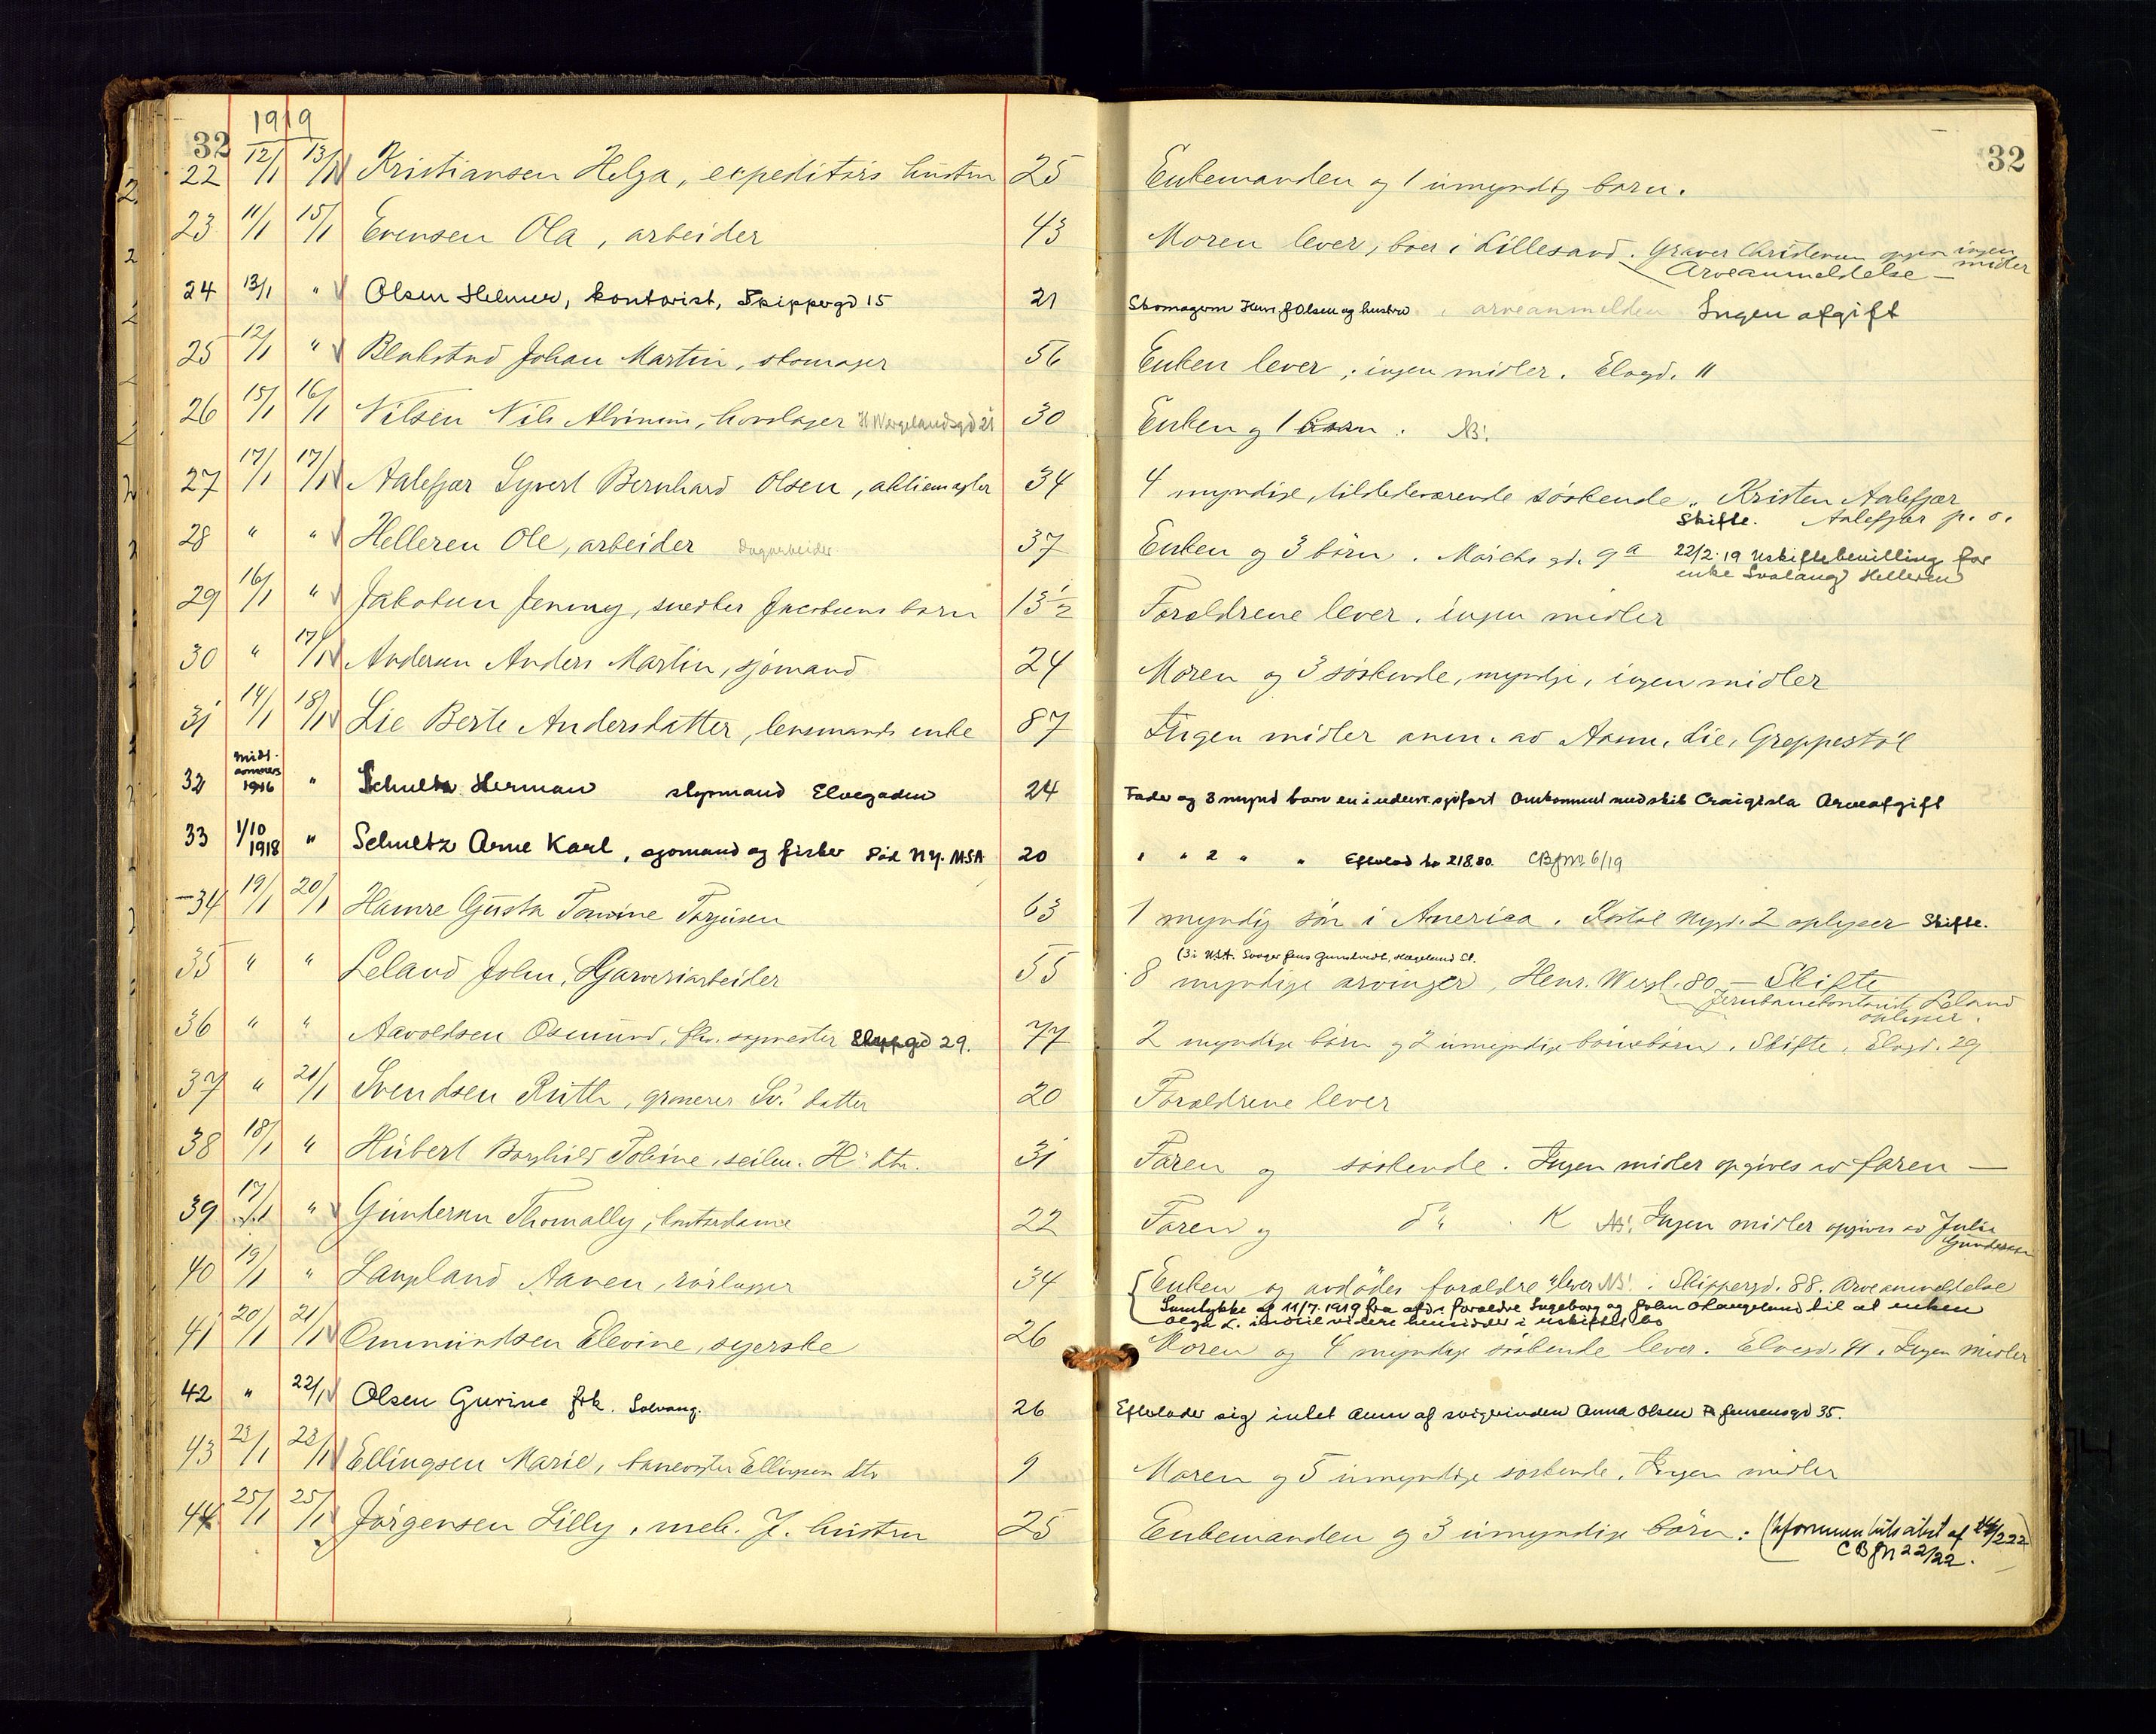 32
1919
22 12/1 13/1 Kristiansen Helga, expeditørs hustru 25 Enkemanden og 1 umyndig barn.
23 11/1 15/1 Evensen Ola, arbeider 43 Moren lever, boer i Lillesand. Graver Christensen opgir ingen midler
Arveanmeldelse —
24 13/1 " Olsen Helmer, kontorist, Skippergd 15 21 Skomagerm Henr. J Olsen og hustru arveanmelden Ingen afgift
25 12/1 " Blakstad Johan Martin, skomager 56 Enken lever, ingen midler. Elvegd. 11
26 15/1 16/1 Nilsen Nils Alvinius, hovslager H Wergelandsgd 21 30 Enken og 1 barn. NB!
27 17/1 17/1 Aalefjær Syvert Bernhard Olsen, aktiemægler 34 4 myndige, tilstedeværende søskende. Kristen Aalefjær
Skifte. Aalefjær p. o.
28 " " Helleren Ole, arbeider Dagarbeider 37 Enken og 3 børn. Marchs gd. 9a 22/2.19 Uskiftebevilling for
enke Svalaug Helleren
29 16/1 " Jakobsen Jenny, snedker Jacobsens barn 13½ Forældrene lever. ingen midler
30 " 17/1 Andersen Anders Martin, sjømand 24 Moren og 3 søskende, myndige, ingen midler
31 14/1 18/1 Lie Berte Andersdatter, lensmands enke 87 Ingen midler anm. av Asm. Lie, Greppestøl
32 Midtsommers 1916 " Schultz Herman styrmand Elvegaden 24 Fader og 3 mynd barn en i udenr. sjøfart Omkommet med skib Craigisla Arveafgift
33 1/10 1918 " Schultz Arne Karl, sjømand og fisker Død N.Y. USA 20 " " 2 " " Efterlod kr 218.80. CBJNo 6/19
34 19/1 20/1 Hamre Gusta Tomine Torjusen 63 1 myndig søn i America. Kostøl Nygd. 2 oplyser Skifte.
(3 i USA. Svoger Jens Gundersen, Hægeland St.
35 " " Leland John, Garveriarbeider 55 8 myndige arvinger, Henr. Wergl. 80 — Skifte
Jernbanekontorist Leland
oplyser.
36 " " Aavoldsen Osmund, fhv. sagmester Elvegd 29. 77 2 myndige børn og 2 umyndige børnebørn. Skifte. Elvgd. 29
37 " 21/1 Svendsen Ruth, grosserer Sv.' datter 20 Forældrene lever
38 18/1 " Hubert Borghild Toline, seilm. H' dtr. 31 Faren og søskende. Ingen midler opgives av faren —
39 17/1 " Gundersen Thomally, kontordame 22 Faren og do K NB! Ingen midler opgives av Julie
Gundersen
40 19/1 " Langeland Aanen, rørlægger 34 Enken og avdødes forældre lever NB! Skippergd. 88. Arveanmeldelse
Samtykke af 11/7.1919 fra afd.s forældre Ingeborg og John O Langeland til at enken
Olga L. indtil videre hensidder i uskiftet bo
41 20/1 21/1 Ommundsen Elevine, syerske 26 Moren og 4 myndige søskende lever. Elvegd. 41. Ingen midler
42 " 22/1 Olsen Gurine frk. Solvang. 26 Efterlader sig intet Anm af svigerinden Anna Olsen Jensensgd 35.
43 23/1 23/1 Ellingsen Marie, banevogter Ellingsen dtr 9 Moren og 5 umyndige søskende. Ingen midler
44 25/1 25/1 Jørgensen Lilly, mek. J. hustru 25 Enkemanden og 3 umyndige børn.
CBJN 22/22.
32